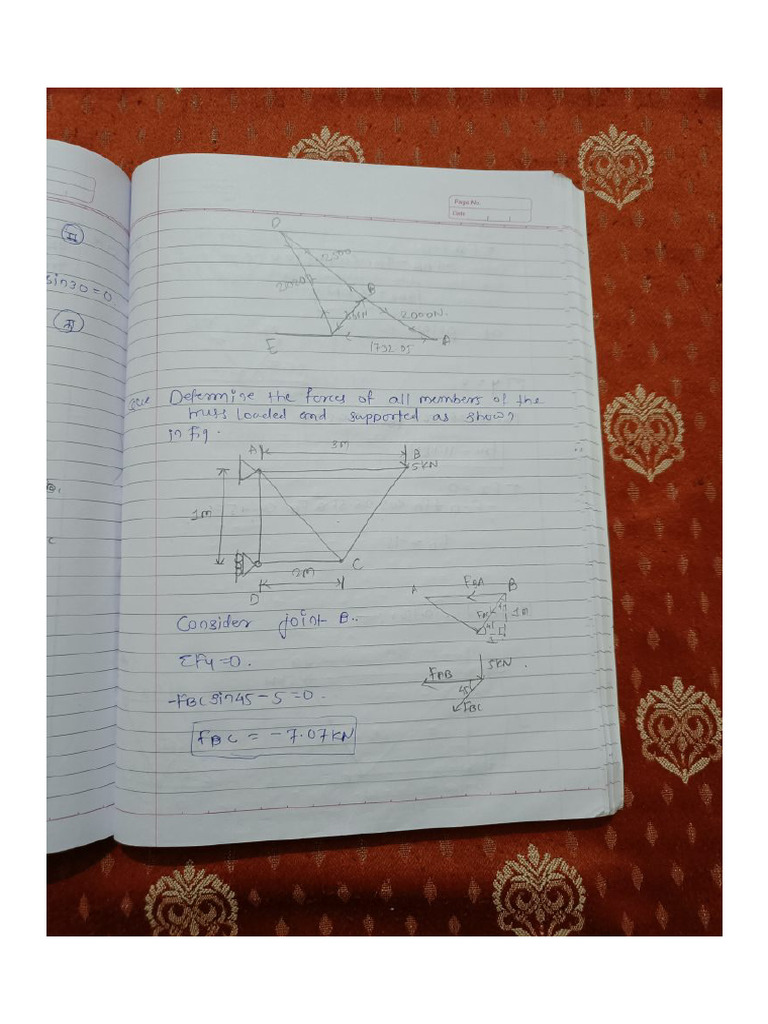 Page No.
Date
II
sin30=0.
III
2500
2000
B
2000N.
E
A
1732.05
Que Determine the forces of all members of the
truss loaded and supported as shown
in Fig.
A
3m
B
5KN
1m
2m
C
D
Consider joint B.
ΣFy=0.
-FBCsin45-5=0.
FBC = -7.07KN
A
FBA
B
1m
FAB
5KN.
45
FBC